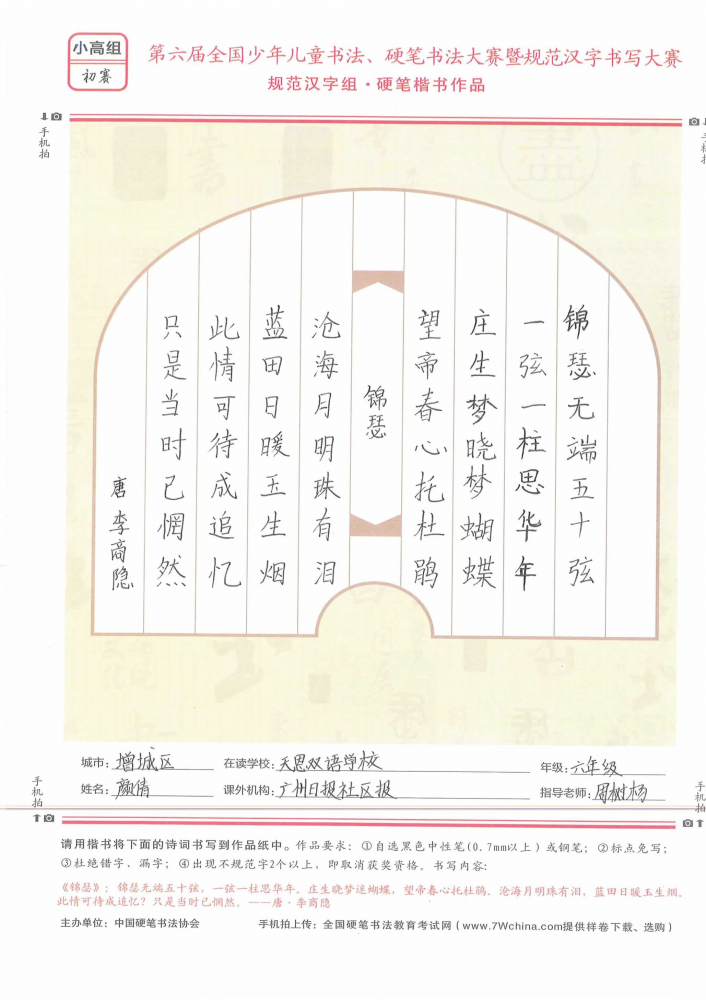 小高组
初赛
第六届全国少年儿童书法、硬笔书法大赛暨规范汉字书写大赛
规范汉字组·硬笔楷书作品
手机拍
手机拍
锦瑟无端五十弦
一弦一柱思华年
庄生梦晓梦蝴蝶
望帝春心托杜鹃
锦瑟
沧海月明珠有泪
蓝田日暖玉生烟
此情可待成追忆
只是当时已惘然
唐 李商隐
城市：增城区 在读学校：天恩双语学校 年级：六年级
姓名：颜倩 课外机构：广州日报社区报 指导老师：周树杨
手机拍
手机拍
请用楷书将下面的诗词书写到作品纸中。作品要求：①自选黑色中性笔(0.7mm以上）或钢笔；②标点免写；
③杜绝错字、漏字；④出现不规范字2个以上，即取消获奖资格。书写内容：
《锦瑟》：锦瑟无端五十弦，一弦一柱思华年。庄生晓梦迷蝴蝶，望帝春心托杜鹃。沧海月明珠有泪，蓝田日暖玉生烟。
此情可待成追忆？只是当时已惘然。——唐·李商隐
主办单位：中国硬笔书法协会 手机拍上传：全国硬笔书法教育考试网（www.7Wchina.com提供样卷下载、选购）